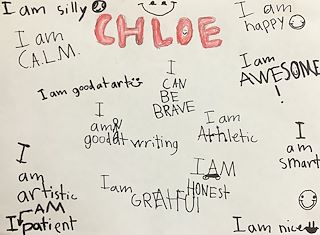 I am silly
CHLOE
I am
happy
I am
C.A.L.M.
I am
AWESOME
!
I am good at art
I
CAN
BE
BRAVE
I
am
good at writing
I am
Athletic
I
am
smart
I
am
artistic
I AM
HONEST
I am
GRATFUl
I AM
patient
I am nice